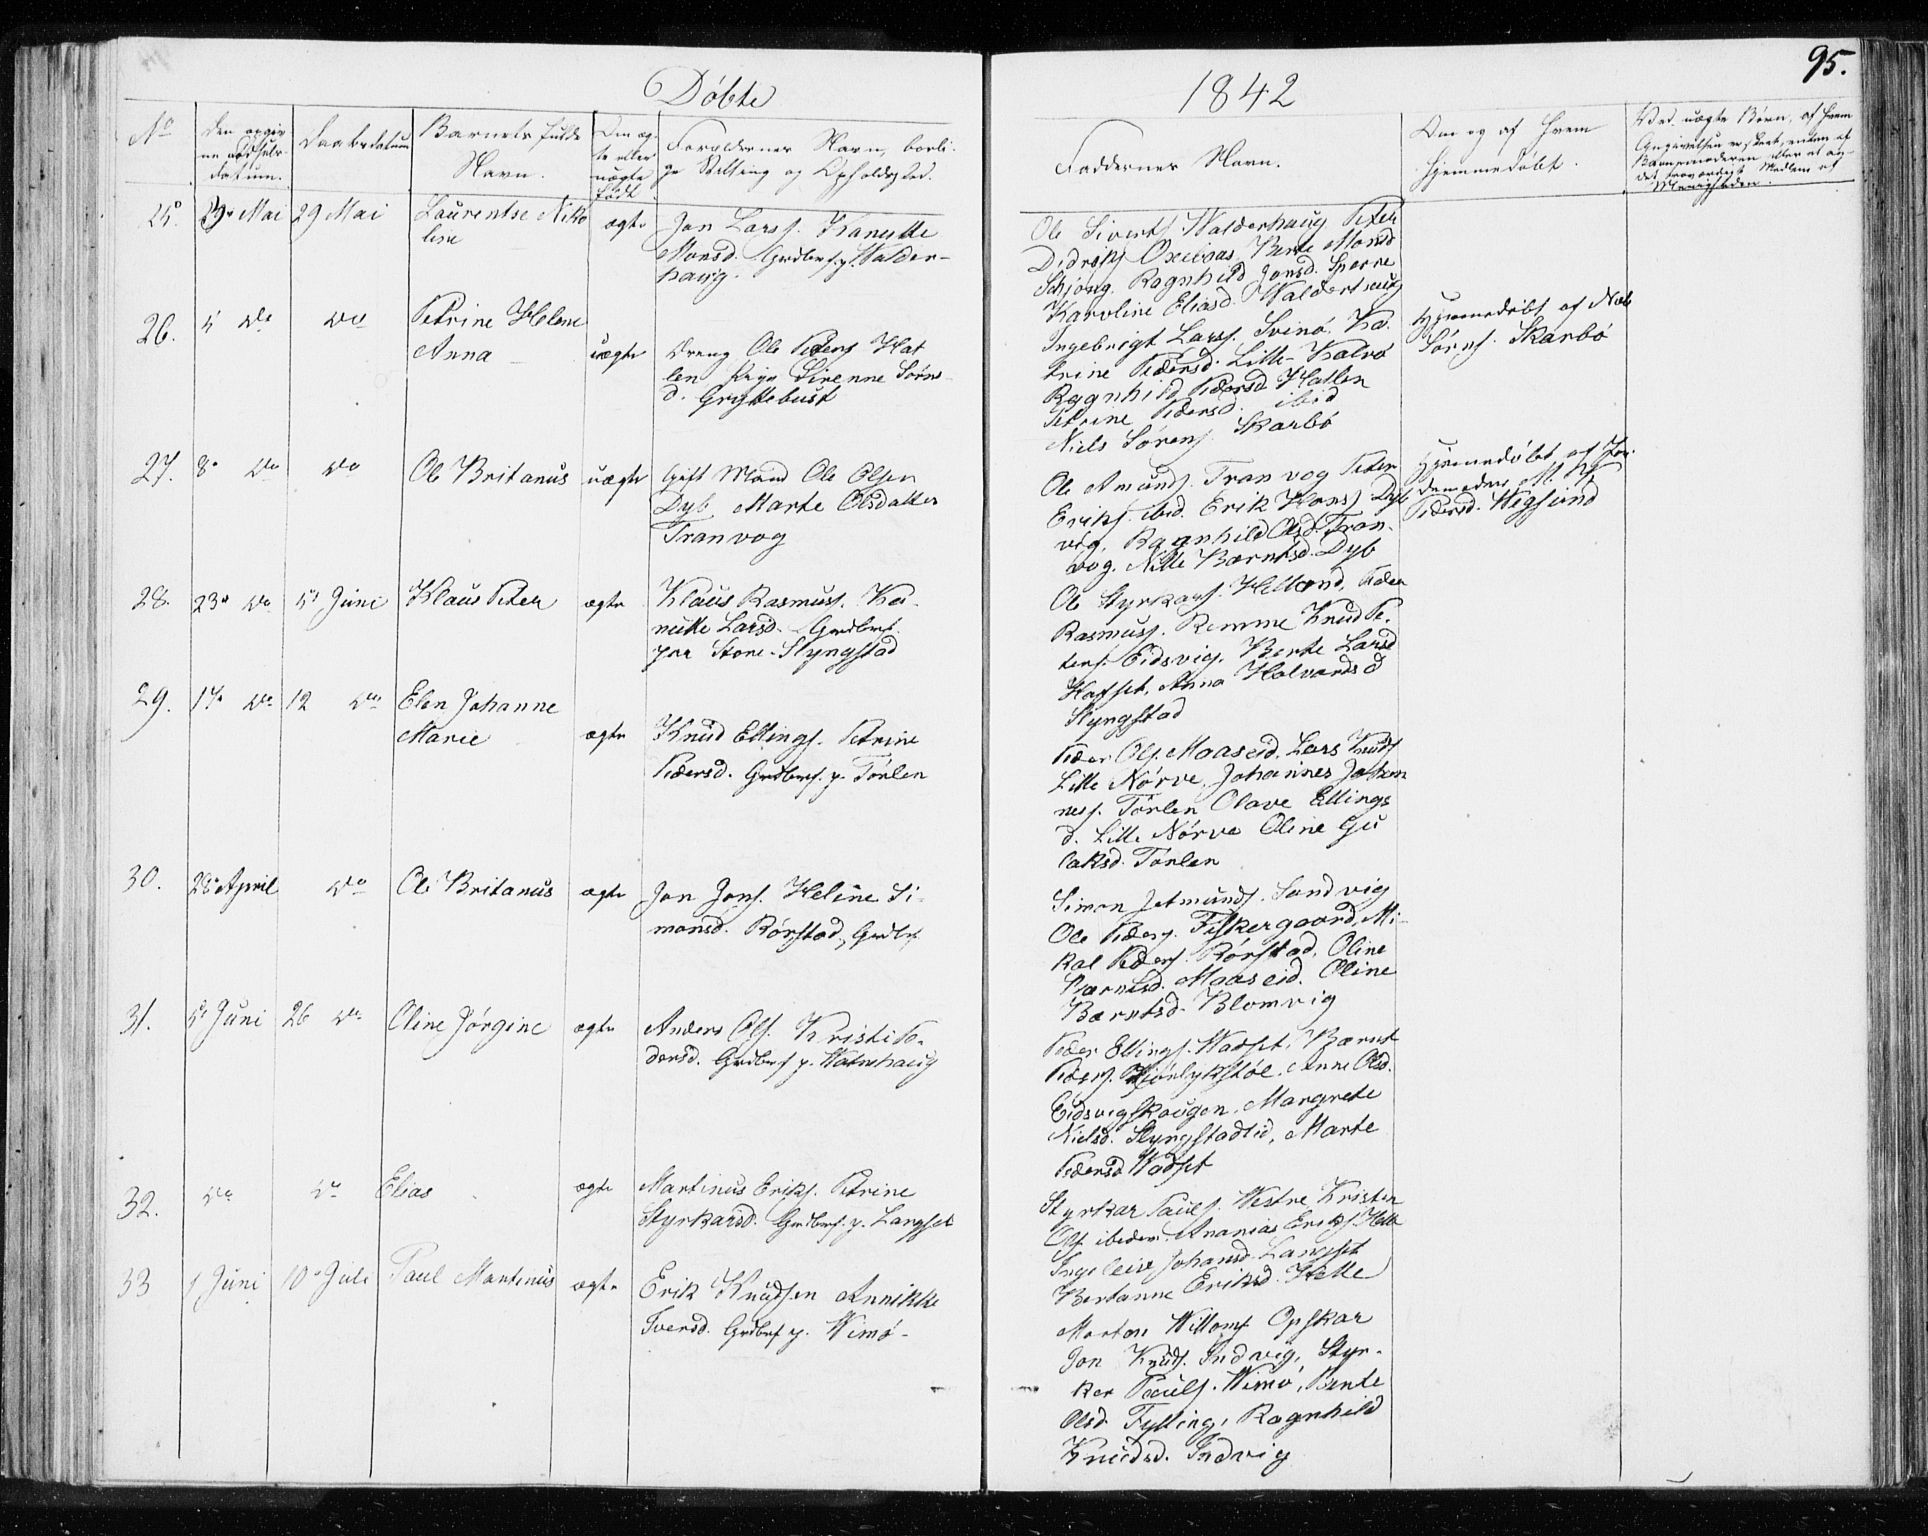 Döbte
1842
95.
No
Den opgiv
ne Födsels
datum.
Daabsdatum
Barnets fulde
Navn.
Om æg
te eller
uægte
födt
Forældrenes Navn, borli-
ge Stilling og Opholdssted.
Faddernes Navn.
Om og af hvem
hjemmedöbt.
Ved uægte Börn, af hvem
Angivelsen er skeet, enten af
Barnemoderen eller et an-
det troværdigt Medlem af
Menigheden.
25. Mai 29 Mai Laurentse Niko
line
ægte
Jon Larss. Kanutte
Monsd. Grdbrf. p. Walder-
haug.
Ole Sivertss. Walderhaug Peter
Didrikss. Berte Monsd
Schjong. Ragnhild Jonsd. Sperre
Karoline Eliasd. Walderhaug
26. 5 do do Petrine Helene
Anna
uægte
Dreng Ole Peders. Hat
len Pige Sirenne Sörns-
d. Gryttebust
Ingebrigt Larss. Svinö. Ka-
trine Pedersd. Lille-Kalvö
Ragnhild Pedersd Hatlen
Petrine Pedersd. ibid
Niels Sörens. Skarbö
Hjemmedöbt af Niels
Sörns. Skarbö
27. 8. do do Ole Britanus uægte
Gift Mand Ole Olsen
Dyb. Marte Olsdatter
Tranvog
Ole Amunds. Tranvog Peter
Eriks. ibid. Erik Hanss. Dyb
vig, Ragnhild Olsd. Tran-
vog. Nille Bærntsd. Dyb
Hjemmedöbt af Jor
demoder
Pedersd. Wigsund
28. 23. do 5. Juni Klaus Peter ægte
Klaus Rasmuss. Ka-
nutte Larsd. Grdbrf.
paa Store-Slyngstad
Ole Styrkars. Helland, Peder
Rasmuss. Remme Knud Pe-
ters. Eidsvig. Berte Larsd
Hafset, Anna Halvardsd
Slyngstad
29. 17. do 12 do Elen Johanne
Marie
ægte
Knud Ellings. Petrine
Pedersd. Grdbrf. p. Törlen
Peder Ols. Maaseid, Lars Knuds
Lille Nörve, Johannes Johan
ness. Törlen Olave Ellings
d. Lille Nörve Oline Gu
laksd. Törlen
30. 28. April do Ole Britanus ægte
Jon Jons. Heline Si-
monsd. Rörstad, Grdbrf.
Simon Jetmunds. Sandvig
Ole Peders. Fiskergaard, Mi-
kal Peders. Rörstad, Oline
Bærntsd. Maaseid. Oline
Bærntsd. Blomvig
31. 5. Juni 26 do Oline Jörgine ægte
Anders Ols. Kristi Pe-
dersd. Grdbrf p. Watnehaug
Peder Ellings. Wadset, Bærnt
Peders. Anne Olsd.
Eidsvigskougen, Margrete
Nielsd. Slyngstadlid, Marte
Pedersd Wadset
32. do do Elias ægte
Martinus Eriks. Petrine
Styrkarsd. Grdbrf. p. Langset
Styrkar Pauls. Westre Kristen
Ols. ibidem. Ananias Eriks. Helle
Ingeleiv Johansd. Langset
Bertanne Eriksd. Helle
33 1 Juni 10. Juli Paul Martinus ægte
Erik Knudsen Annikke
Iversd. Grdbrf p. Wimö-
Morten Willoms Opskar
Jon Knuds. Indvig, Styr-
ker Pauls. Wimö, Bente
Olsd Fylling, Ragnhild
Knudsd. Indvig